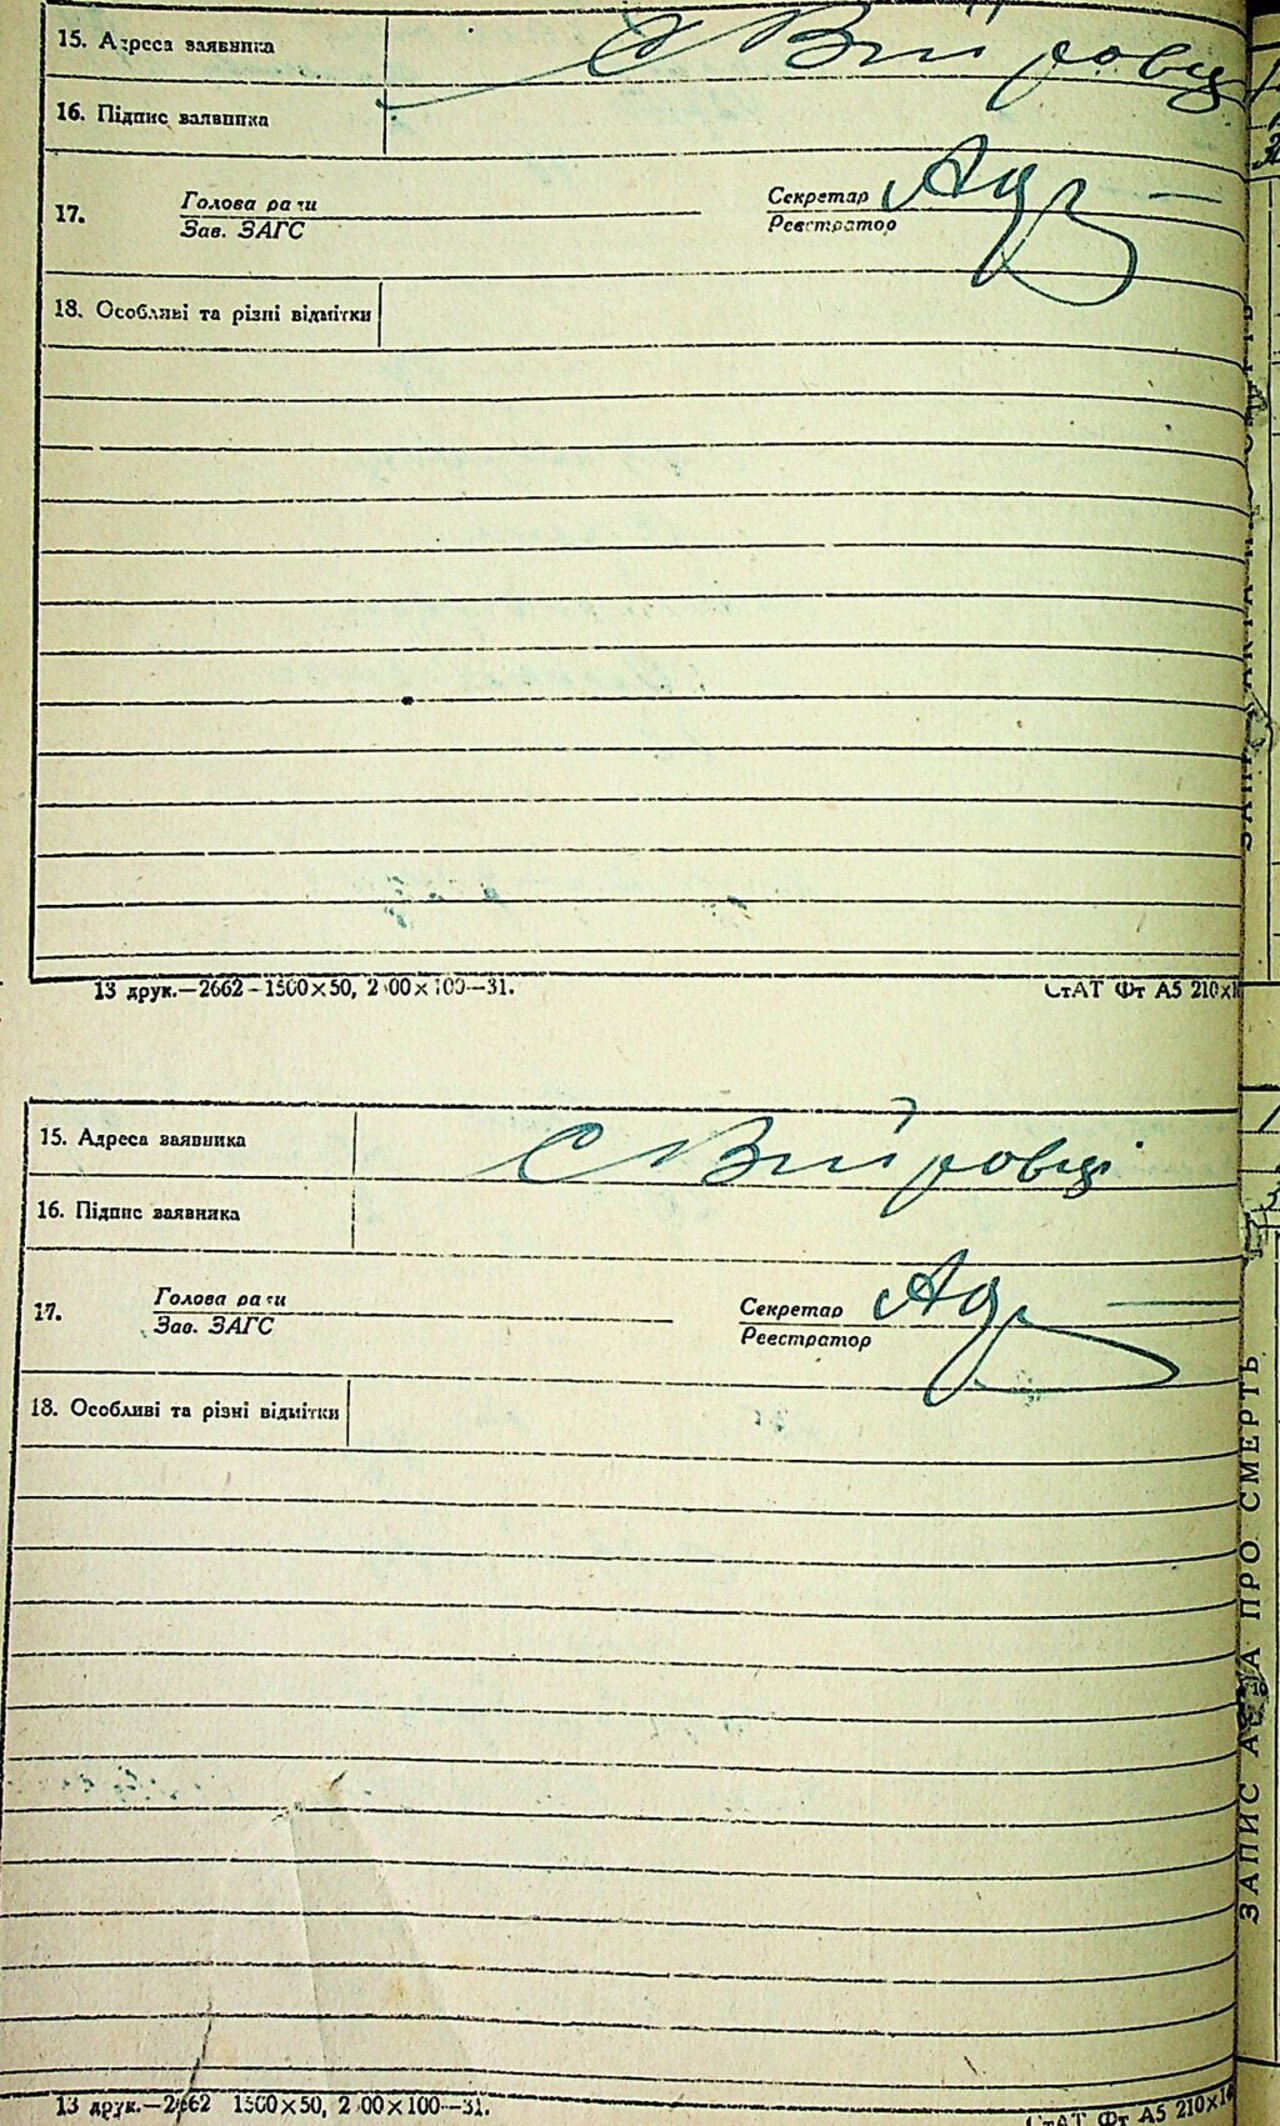 15. Адреса заявника С Війтовці
16. Підпис заявника
17. Голова ради Секретар
Зав. ЗАГС Реєстратор
18. Особливі та різні відмітки
13 друк.—2662—1500×50, 2 00×100—31. СтАТ Фт А5 210×1
15. Адреса заявника С Війтовці
16. Підпис заявника
17. Голова ради Секретар
Зав. ЗАГС Реєстратор
18. Особливі та різні відмітки
13 друк.—2662 1500×50, 2 00×100—31. СтАТ Фт А5 210×1
ЗАПИС АКТА ПРО СМЕРТЬ